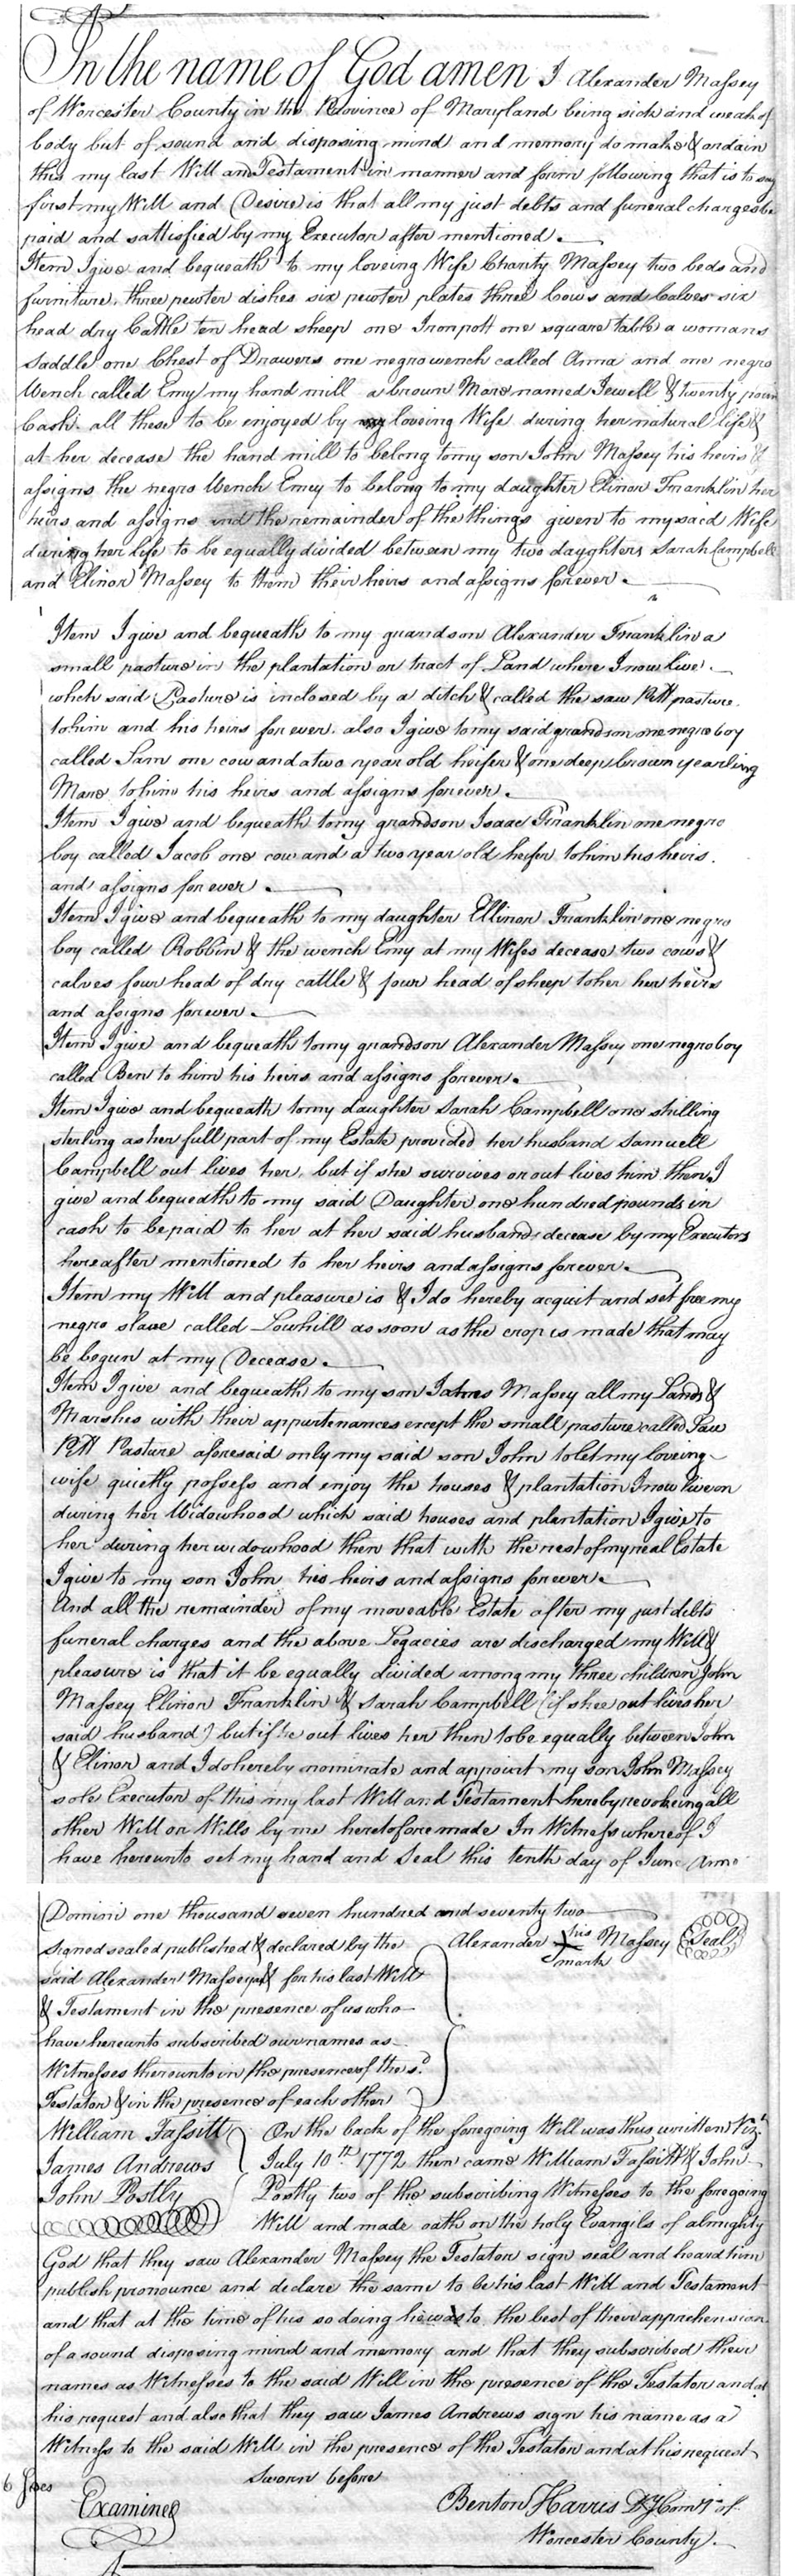 In the name of God amen I Alexander Massey
of Worcester County in the Province of Maryland being sick and weak of
body but of sound and disposing mind and memory do make & ordain
this my last Will and Testament in manner and form following that is to say
first my Will and Desire is that all my just debts and funeral charges be
paid and sattisfied by my Executor after mentioned.
Item I give and bequeath to my loveing Wife Charity Massey two beds and
furniture, three pewter dishes six pewter plates three Cows and Calves six
head dry Cattle ten head sheep one Iron pott one square table a womans
Saddle one Chest of Drawers one negro wench called Anna and one negro
Wench called Emy my hand mill a brown Mare named Jewell & twenty poun
Cash. all these to be enjoyed by my loveing Wife during her natural life &
at her decease the hand mill to belong to my son John Massey his heirs &
assigns the negro Wench Emey to belong to my daughter Elinor Franklin her
heirs and assigns and the remainder of the things given to my said Wife
during her life to be equally divided between my two daughters Sarah Campbell
and Elinor Massey to them their heirs and assigns forever.
Item I give and bequeath to my guardson Alexander Franklin a
small pasture in the plantation or tract of Land where I now live.
which said Pasture is inclosed by a ditch & called the saw Pitt pasture.
to him and his heirs for ever. also I give to my said grandson one negro boy
called Sam one cow and a two year old heifer & one deep brown yearling
Mare to him his heirs and assigns forever.
Item I give and bequeath to my grandson Isaac Franklin one negro
boy called Jacob one cow and a two year old heifer to him his heirs.
and assigns for ever.
Item I give and bequeath to my daughter Ellinor Franklin one negro
boy called Robbin & the wench Emy at my Wifes decease two cows &
calves four head of dry cattle & four head of sheep to her her heirs
and assigns forever.
Item I give and bequeath to my grandson Alexander Massey one negro boy
called Ben to him his heirs and assigns forever.
Item I give and bequeath to my daughter Sarah Campbell one shilling
sterling as her full part of my Estate provided her husband Samuell
Campbell out lives her, but if she survives or out lives him then I
give and bequeath to my said Daughter one hundred pounds in
cash to be paid to her at her said husbands decease by my Executors
hereafter mentioned to her heirs and assigns forever.
Item my Will and pleasure is & I do hereby acquit and set free my
negro slave called Lowhill as soon as the crop is made that may
be begun at my Decease.
Item I give and bequeath to my son James Massey all my Lands &
Marshes with their appurtenances except the small pasture called Saw
Pitt Pasture aforesaid only my said son John to let my loveing
wife quietly possess and enjoy the houses & plantation I now live on
during her Widowhood which said houses and plantation I give to
her during her widowhood then that with the rest of my real Estate
I give to my son John his heirs and assigns forever.
And all the remainder of my moveable Estate after my just debts
funeral charges and the above Legacies are discharged my Will &
pleasure is that it be equally divided among my three children John
Massey Elinor Franklin & Sarah Campbell (if shee out lives her
said husband) but if he out lives her then to be equally between John
& Elinor and I do hereby nominate and appoint my son John Massey
sole Executor of this my last Will and Testament hereby revokeing all
other Will or Wills by me heretofore made In Witness whereof I
have hereunto set my hand and Seal this tenth day of June Anno
Domini one thousand seven hundred and seventy two
Signed sealed published & declared by the
Alexander his mark Massey Seal
said Alexander Massey & for his last Will
& Testament in the presence of us who
have hereunto subscribed our names as
Witnesses thereunto in the presence of the sd
Testator & in the presence of each other
William Fassitt
James Andrews
John Postly
On the back of the foregoing Will was thus written Vizt
July 10th 1772 then came William Fassitt & John
Postly two of the subscribing Witnesses to the foregoing
Will and made oath on the holy Evangils of almighty
God that they saw Alexander Massey the Testator sign seal and heard him
publish pronounce and declare the same to be his last Will and Testament
and that at the time of his so doing he was to the best of their apprehension
of a sound disposing mind and memory and that they subscribed their
names as Witnesses to the said Will in the presence of the Testator and at
his request and also that they saw James Andrews sign his name as a
Witness to the said Will in the presence of the Testator and at his request
Sworn before
6 sides
Examined
Benton Harris Dy Comry of
Worcester County.